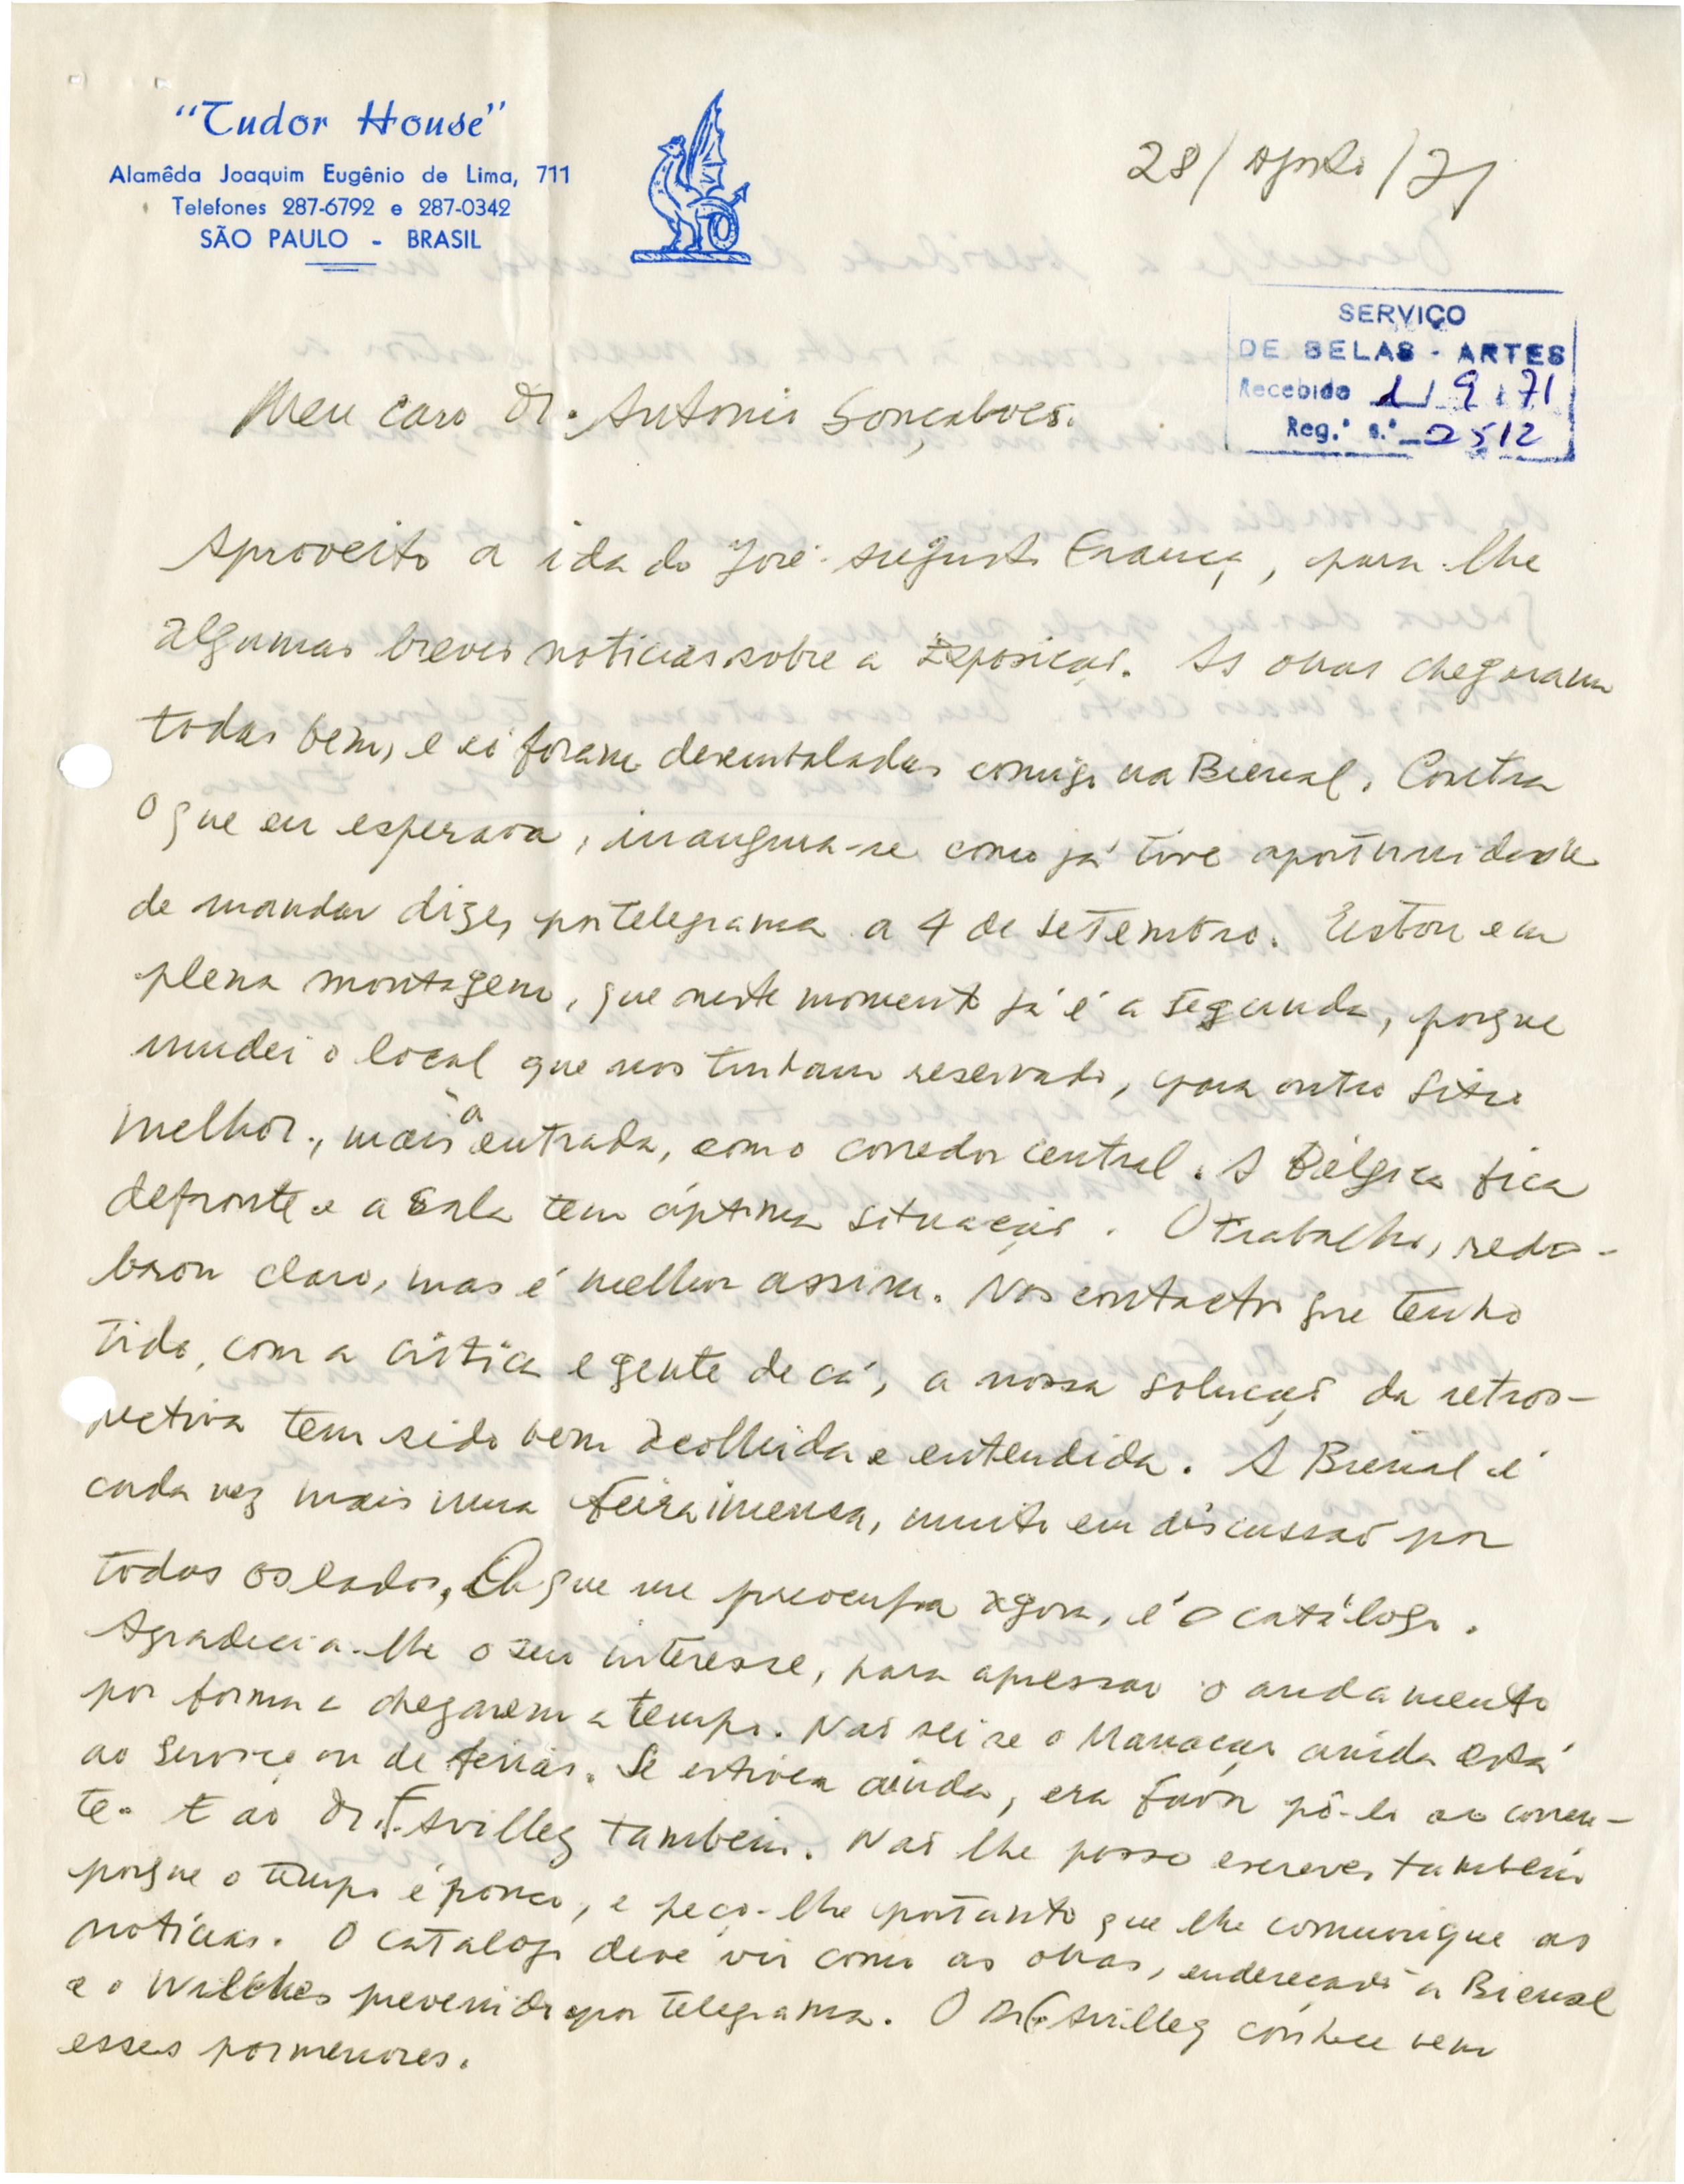 "Tudor House"
Alamêda Joaquim Eugênio de Lima, 711
Telefones 287-6792 e 287-0342
SÃO PAULO - BRASIL
28/Agosto/71
SERVIÇO
DE BELAS-ARTES
Recebido 1/9/71
Reg.º n.º 2512
Meu caro Dr. Antonio Gonçalves.
Aproveito a ida do José-Augusto França, para lhe
algumas breves noticias sobre a Exposição. As obras chegaram
todas bem, e só foram desembaladas comigo na Bienal. Contra
o que eu esperava, inaugura-se como já tive oportunidade
de mandar dizer por telegrama a 4 de Setembro. Estou em
plena montagem, que neste momento já é a segunda, porque
mudei o local que nos tinham reservado, para outro sitio
melhor, mais à entrada, como corredor central. A Bélgica fica
defronte e a Sala tem óptima situação. O trabalho, redo-
brou claro, mas é melhor assim. Nos contactos que tenho
tido, com a crítica e gente de cá, a nossa solução da retros-
pectiva tem sido bem acolhida e entendida. A Bienal é
cada vez mais uma feira imensa, muito em discussão por
todos os lados. O que me preocupa agora, é o catálogo.
Agradecia-lhe o seu interesse, para apressar o andamento
por forma a chegarem a tempo. Não sei se o Manaças ainda está
ao serviço ou de férias. Se estiver ainda, era favor pô-lo ao corren-
te. E ao Dr. F. Avillez também. Não lhe posso escrever também
porque o tempo é pouco, e peço-lhe portanto que lhe comunique as
notícias. O catalogo deve vir como as obras, endereçado à Bienal
e o Wilches prevenido por telegrama. O Dr. F. Avillez conhece bem
esses pormenores.